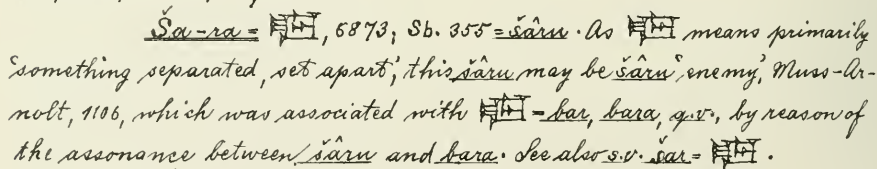 Ša-ra = 𒁈, 6873; Sb. 355 = šâru. As 𒁈 means primarily
'something separated, set apart', this šâru may be šâru 'enemy', Muss-Ar-
nolt, 1106, which was associated with 𒁈 = bar, bara, q.v., by reason of
the assonance between šâru and bara. See also s.v. šar = 𒁈.